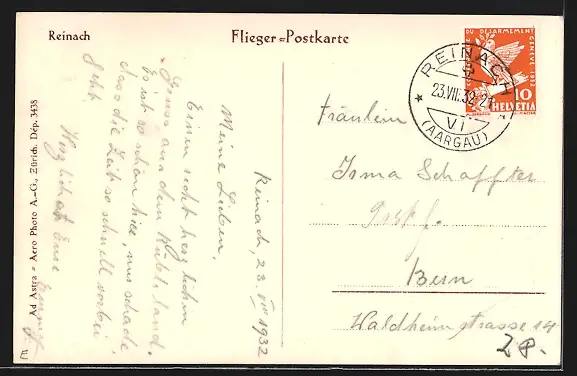 Reinach
Flieger-Postkarte
DU DÉSARMEMENT
GENÈVE 1932
10
HELVETIA
REINACH
23.VIII.32-21
VI
(AARGAU)
Reinach, 23. VIII 1932
Meine Lieben,
Einen recht herzlichen
Gruss aus dem
Es ist so schön hier, nur schade
dass die Zeit so schnell vorbei
geht.
Herzlichst Eure
Fräulein
Irma Schaffter
Bern
Waldheimstrasse 14
Ad Astra - Aero Photo A.-G., Zürich. Dép. 3438